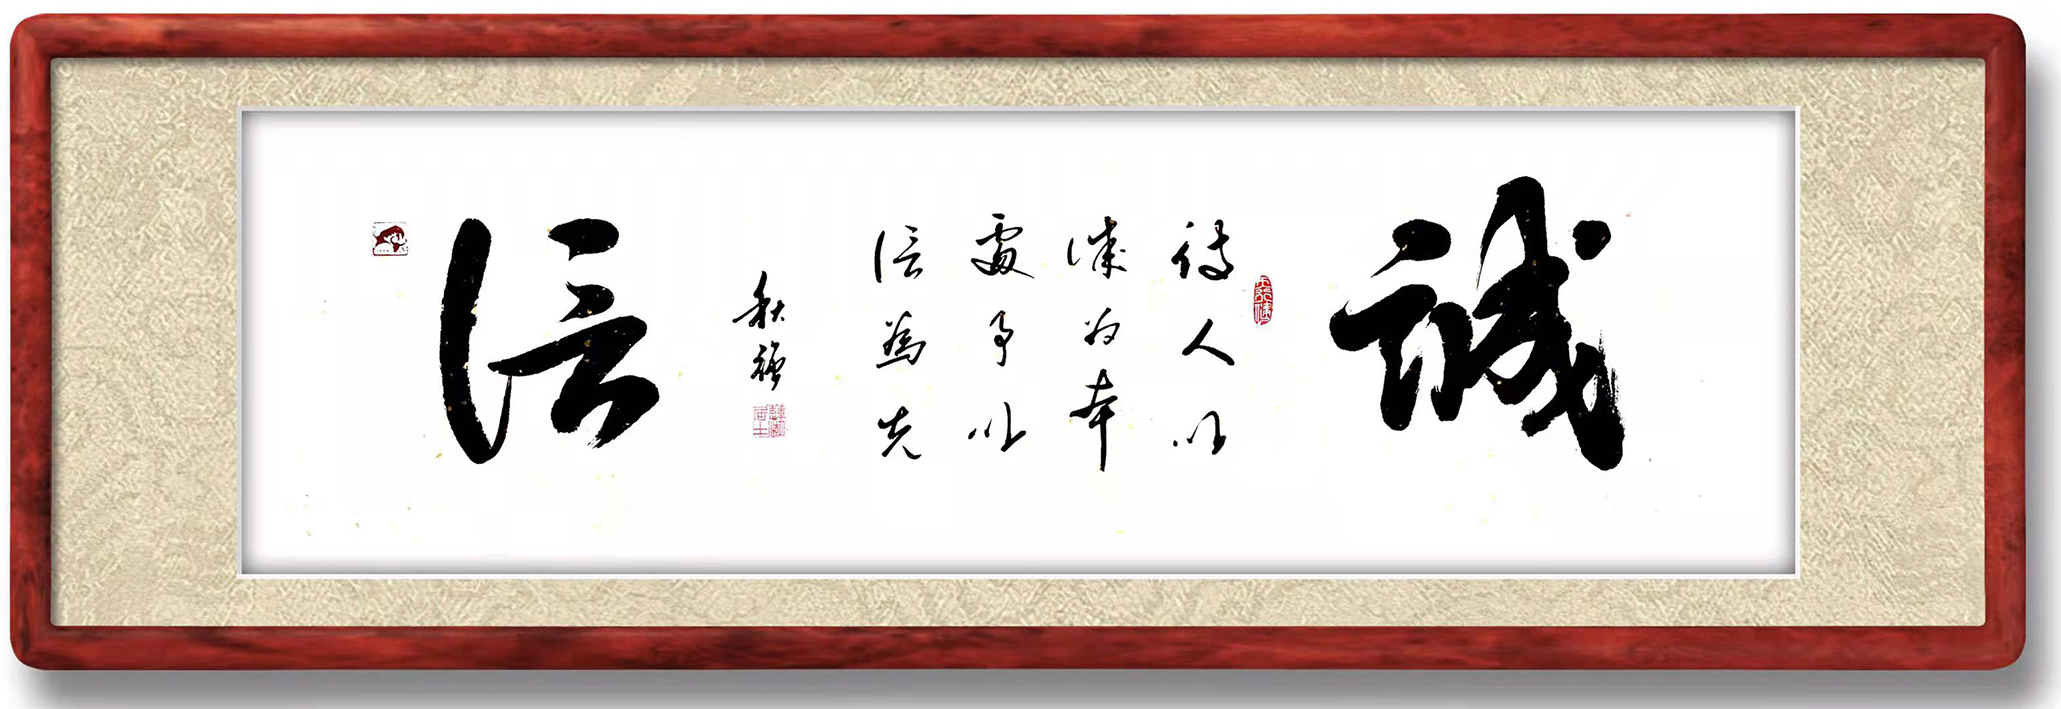 誠
待人以
誠为本
處事以
信為先
秋
信